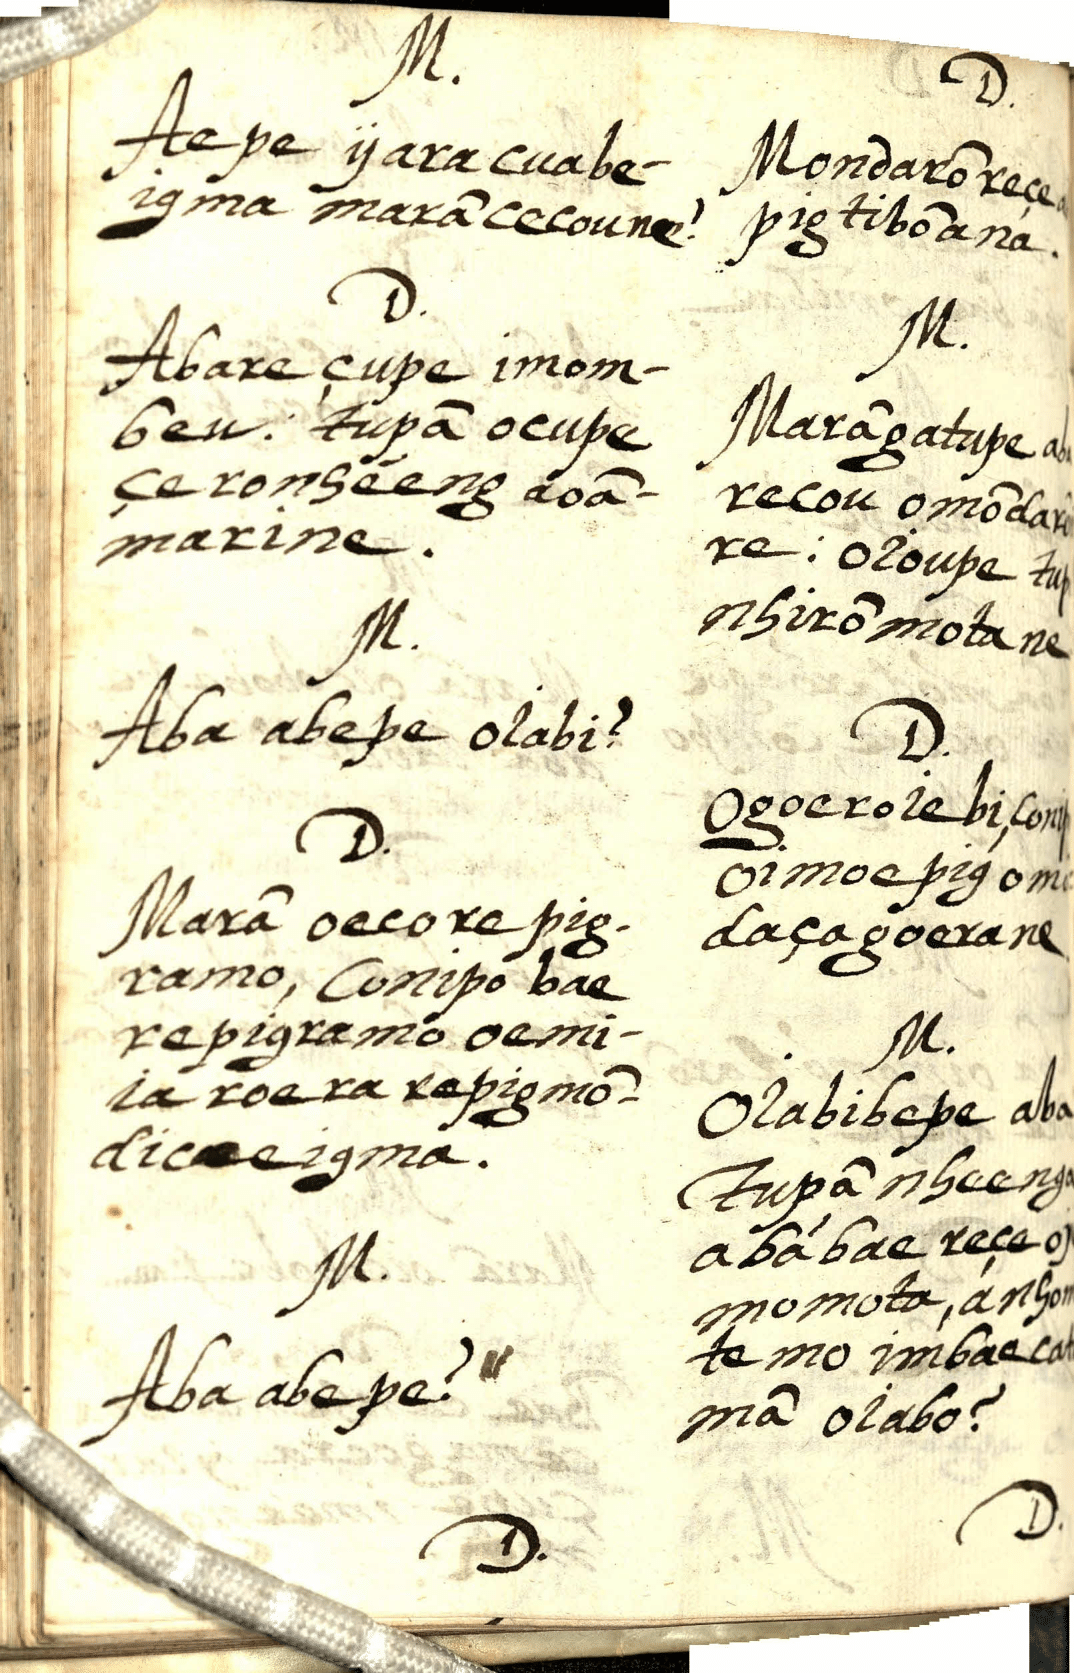 M.
Ae pe ÿara cuabe-
igma marãcecoune?
D.
Abare çupe imom-
beu: tupã ocupe
çeronhéeng aoã-
marine.
M.
Aba abepe oiabi?
D.
Marã oecorepig-
ramo, Conipo bae
repigramo oemi-
ia roera repigmõ-
dicaeeigma.
M.
Aba abepe?
D.
D.
Mondarõreçe
pigtibõana.
M.
Marãgatupe aba
recou omõdarõ
re: oioupe tup
nhirõmotane
D.
Ogoeroiebi, conip
oimoepig omõ
daçagoerane
M.
Oiabibepe aba
tupã nheenga
abábae reçe oi
momota, ánhom
te mo imbaecat
mã oiabo?
D.